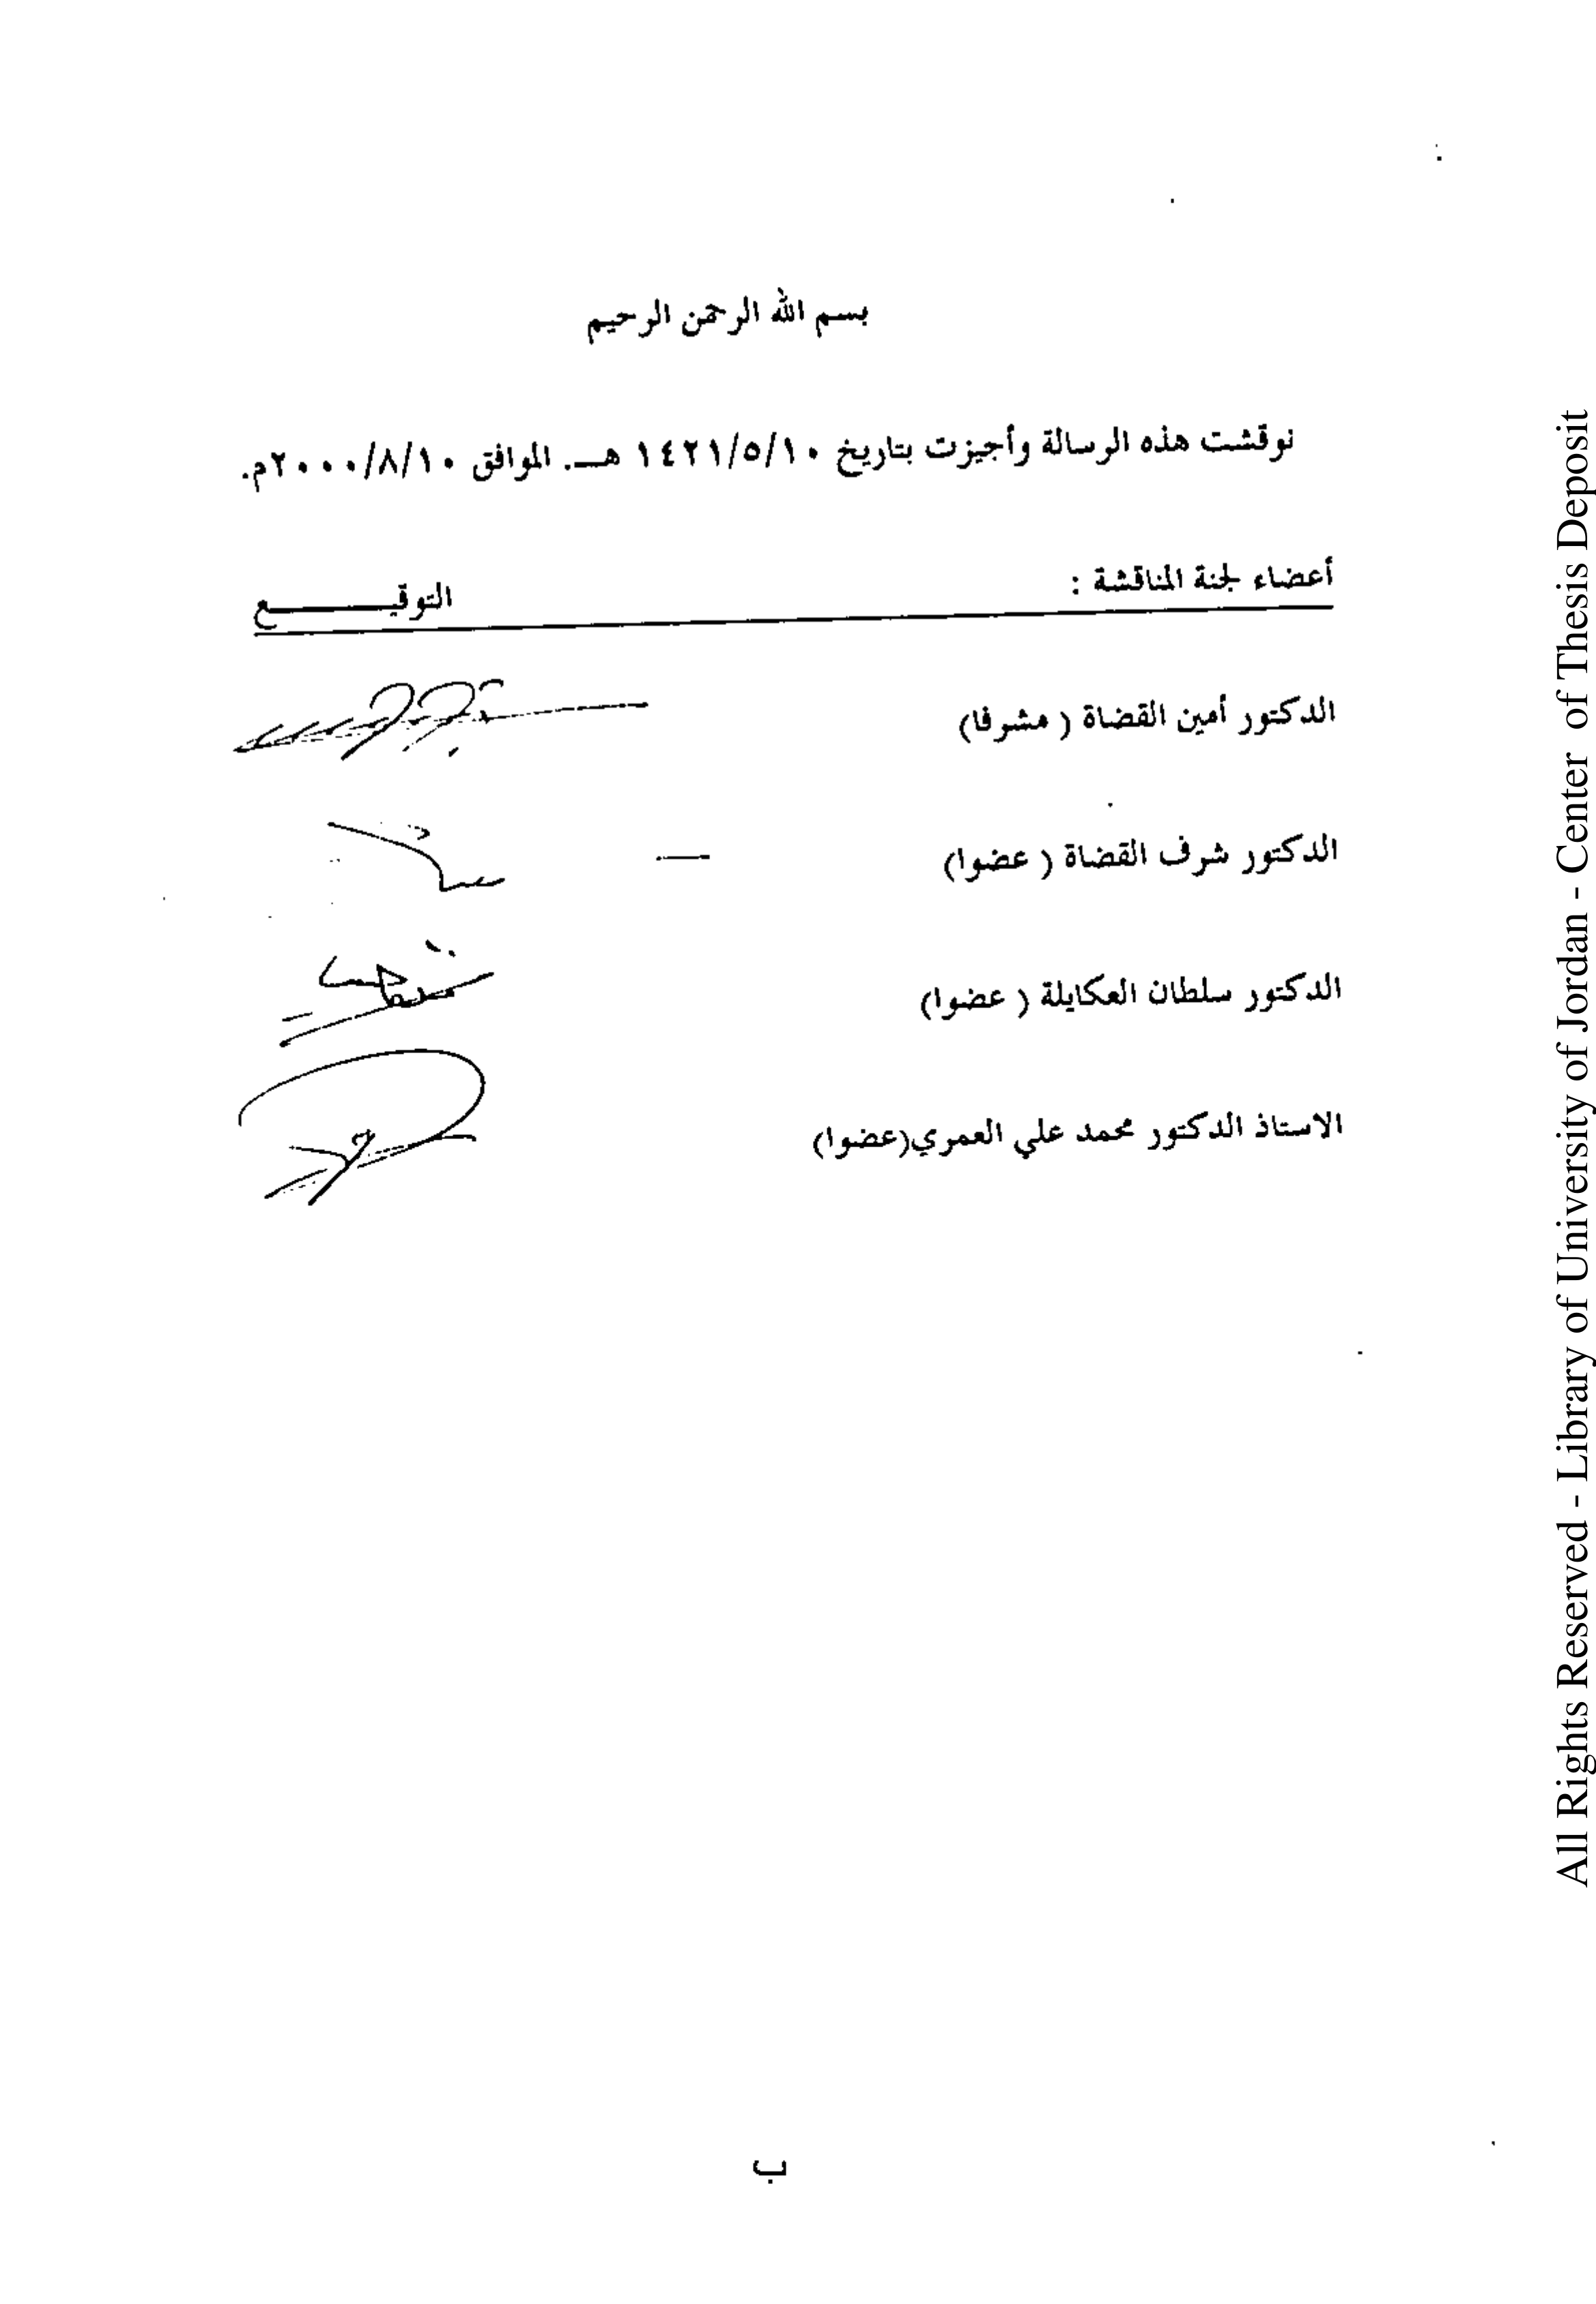 بسم الله الرحمن الرحيم
نوقشت هذه الرسالة وأجيزت بتاريخ ١٤٢١/٥/١٠ هــ. الموافق ٢٠٠٠/٨/١٠م.
أعضاء لجنة المناقشة : التوقيـــــــــع
الدكتور أمين القضاة ( مشرفا)
الدكتور شرف القضاة ( عضوا)
الدكتور سلطان العكايلة ( عضوا)
الاستاذ الدكتور محمد علي العمري(عضوا)
ب
All Rights Reserved - Library of University of Jordan - Center of Thesis Deposit